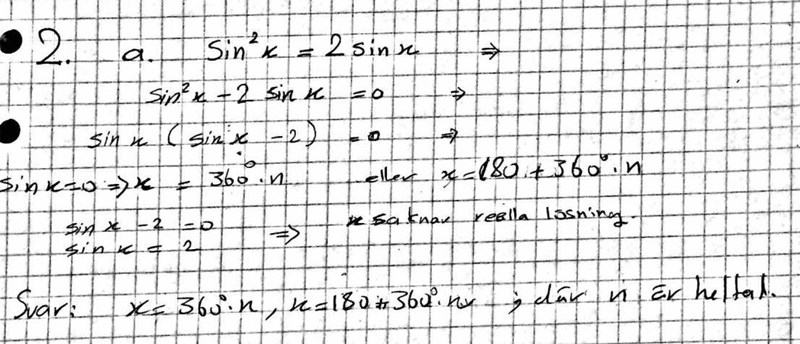 2. a. sin²x = 2 sin x ⇒
sin²x - 2 sin x = 0 ⇒
sin x (sin x - 2) = 0 ⇒
sin x = 0 ⇒ x = 360° · n eller x = 180 + 360° · n
sin x - 2 = 0
sin x = 2 ⇒ x saknar reella lösning.
Svar: x = 360° · n, x = 180 + 360° · n ; där n är heltal.